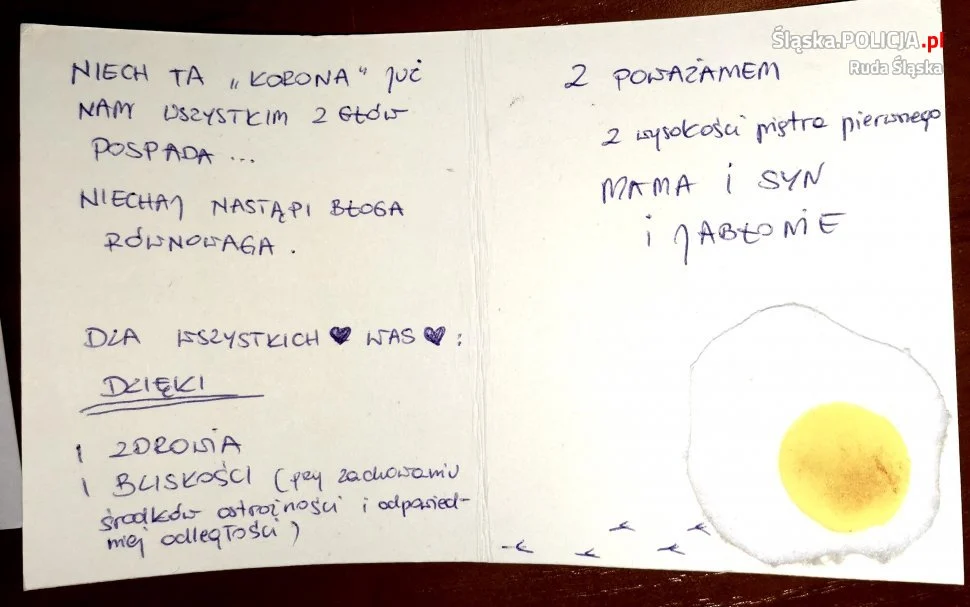 Śląska.POLICJA.pl
Ruda Śląska
NIECH TA „KORONA" JUŻ
NAM WSZYSTKIM Z GŁÓW
POSPADA ...
NIECHAJ NASTĄPI BŁOGA
RÓWNOWAGA.
DLA WSZYSTKICH ♥ WAS ♥:
DZIĘKI
I ZDROWIA
I BLISKOŚCI (przy zachowaniu
środków ostrożności i odpowied-
niej odległości)
Z POWAŻANIEM
z wysokości piętra pierwszego
MAMA i SYN
i JABŁONIE